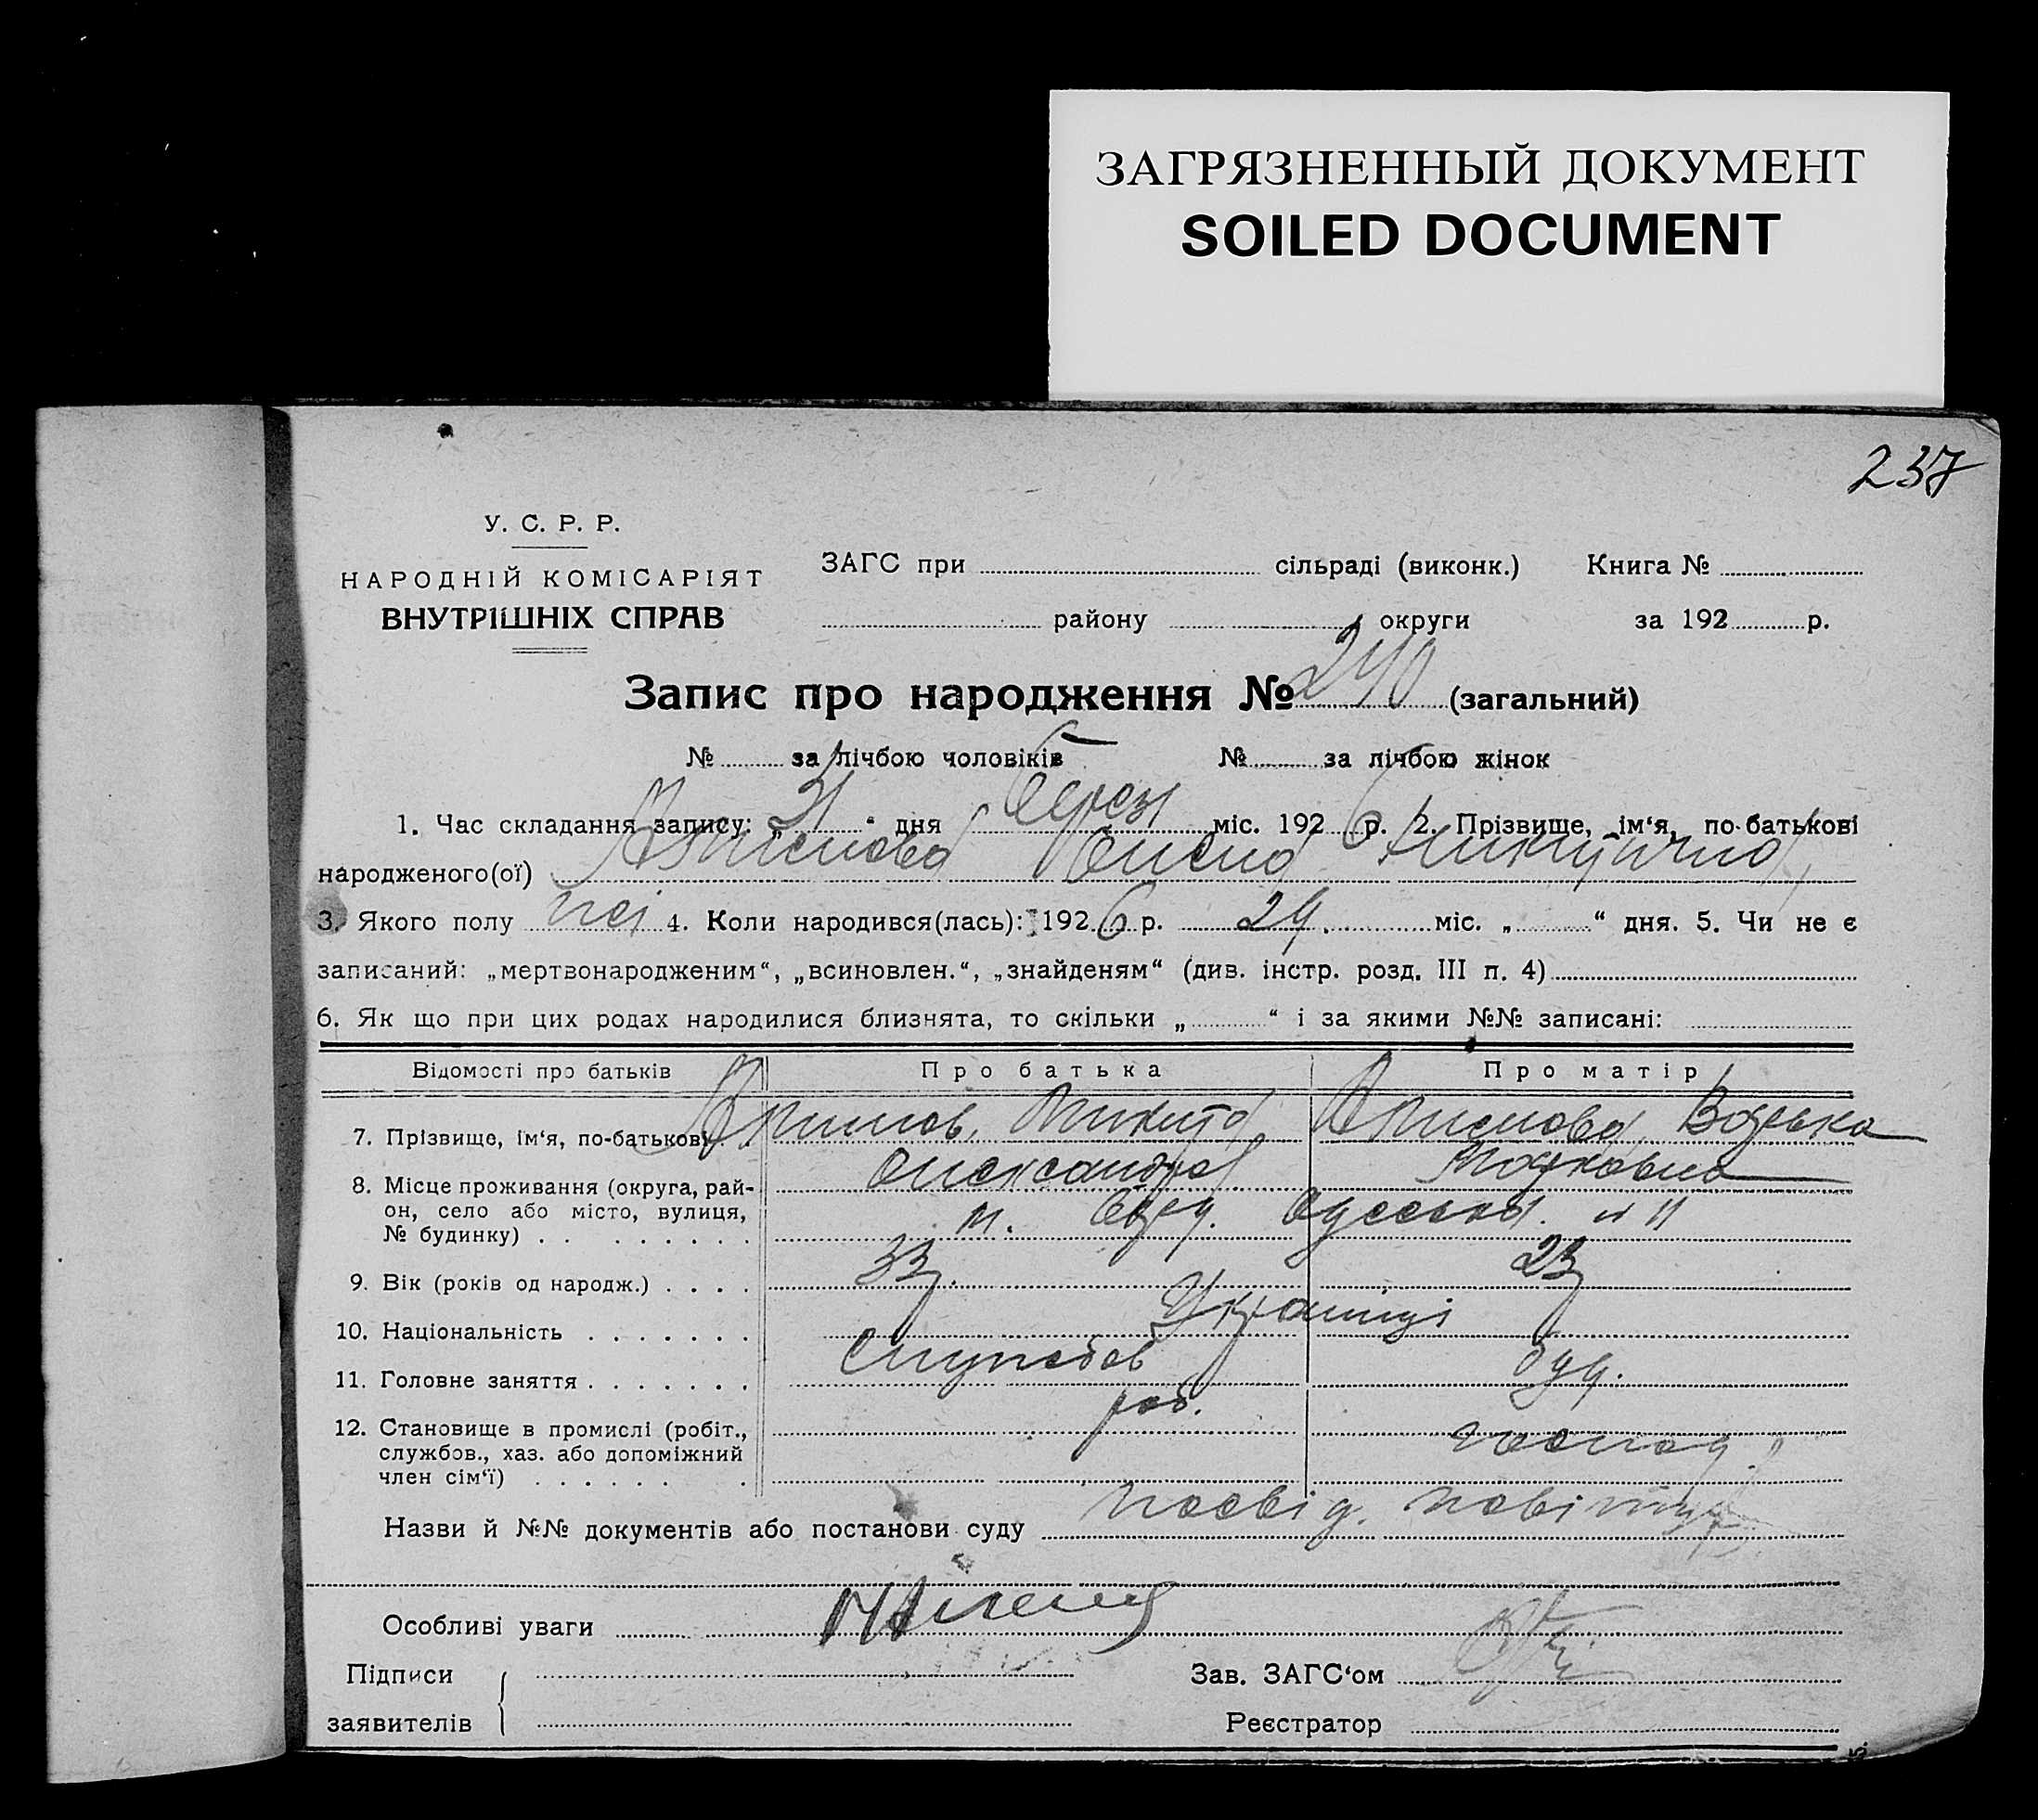 ЗАГРЯЗНЕННЫЙ ДОКУМЕНТ
SOILED DOCUMENT
237
У. С. Р. Р.
НАРОДНІЙ КОМІСАРІЯТ
ВНУТРІШНІХ СПРАВ
ЗАГС при сільраді (виконк.) Книга №
району округи за 192 р.
Запис про народження № 240 (загальний)
№ за лічбою чоловіків № за лічбою жінок
1. Час складання запису: „31“ дня міс. 1926 р. 2. Прізвище, ім‘я, по-батькові
народженого(ої)
3. Якого полу 4. Коли народився(лась): 1926 р. 24. міс. „ “ дня. 5. Чи не є
записаний: „мертвонародженим“, „всиновлен.“, „знайденям“ (див. інстр. розд. III п. 4)
6. Як що при цих родах народилися близнята, то скільки „ “ і за якими №№ записані:
Відомості про батьків Про батька Про матір
7. Прізвище, ім‘я, по-батькові Микита
8. Місце проживання (округа, рай- Олександров
он, село або місто, вулиця, м.
№ будинку)
9. Вік (років од народж.) 33 23
10. Національність Українці
11. Головне заняття
12. Становище в промислі (робіт., роб.
службов., хаз. або допоміжний господ.
член сім‘ї)
Назви й №№ документів або постанови суду посвід.
Особливі уваги
Підписи Зав. ЗАГС‘ом
заявителів Реєстратор